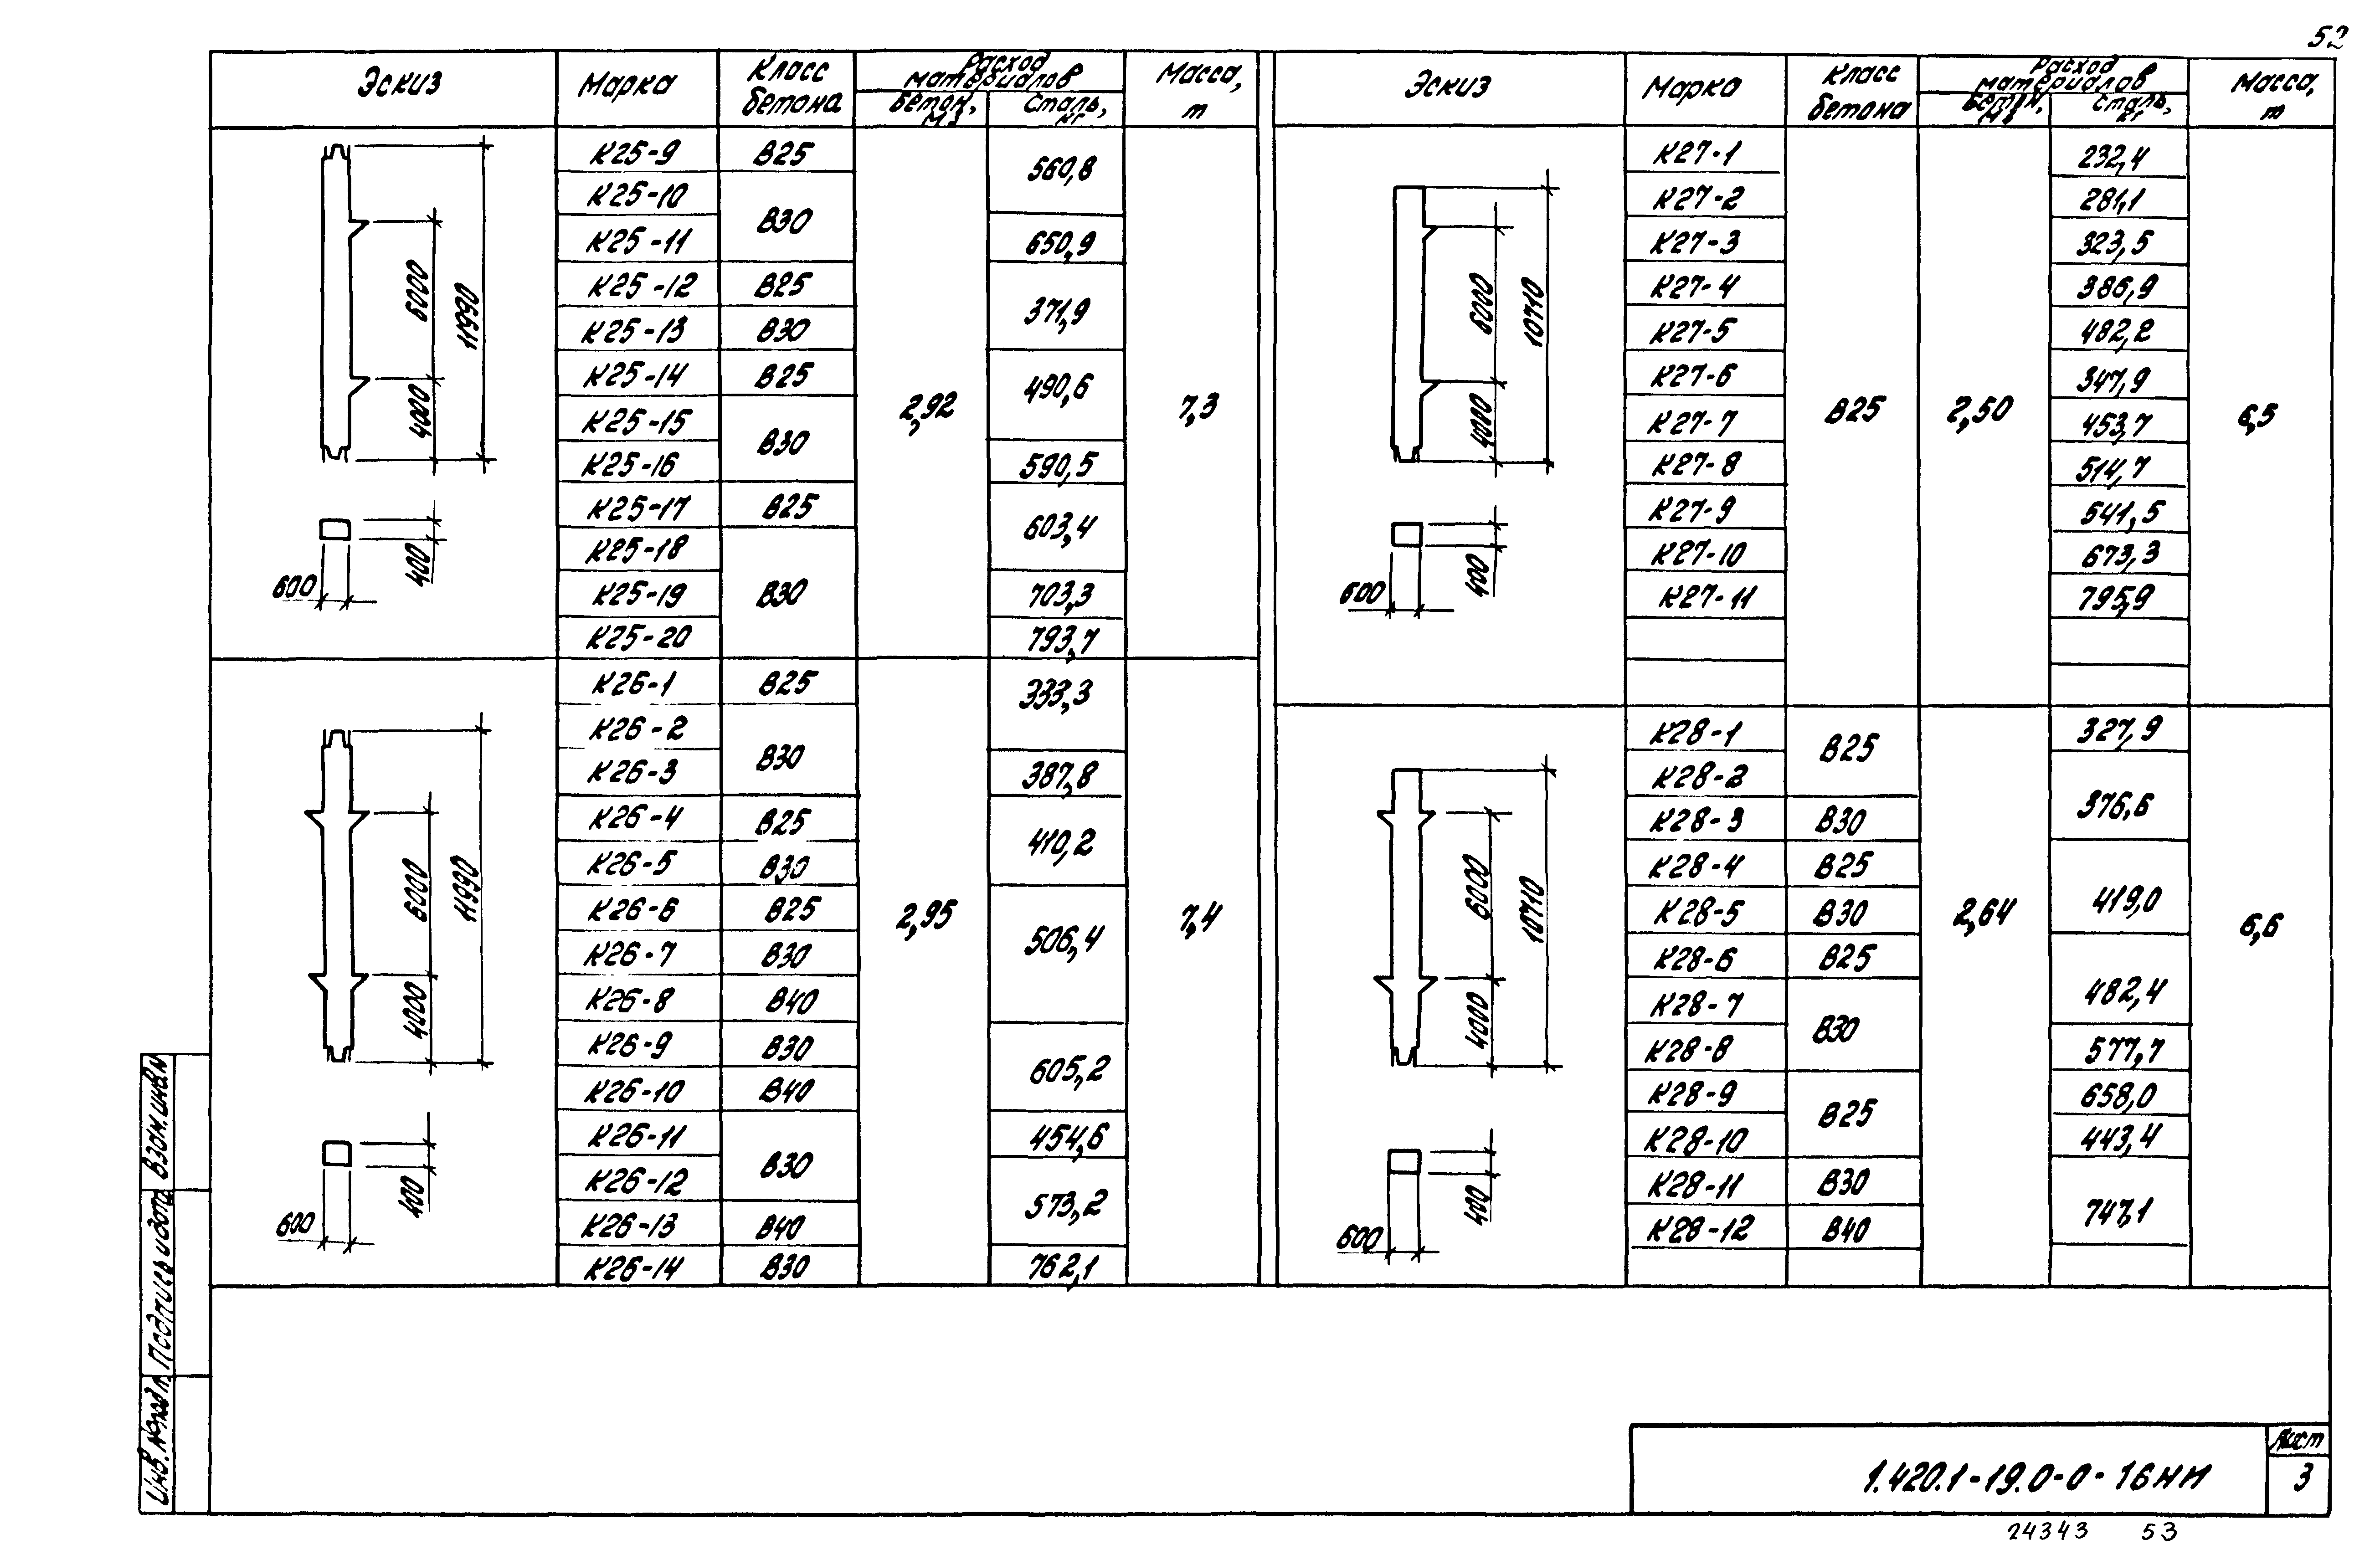 52
Эскиз Марка Класс бетона Расход материалов Бетон, м3 Сталь, кг Масса, т
К25-9 В25 560,8
К25-10 В30
К25-11 650,9
К25-12 В25 371,9
К25-13 В30
К25-14 В25 490,6
К25-15 В30
К25-16 590,5
К25-17 В25 603,4
К25-18 В30
К25-19 703,3
К25-20 793,7
2,92 7,3
6000 4000 11990
400
600
К26-1 В25 333,3
К26-2 В30
К26-3 387,8
К26-4 В25 410,2
К26-5 В30
К26-6 В25 506,4
К26-7 В30
К26-8 В40
К26-9 В30 605,2
К26-10 В40
К26-11 В30 454,6
К26-12 573,2
К26-13 В40
К26-14 В30 762,1
2,95 7,4
6000 4000 11990
400
600
Эскиз Марка Класс бетона Расход материалов Бетон, м3 Сталь, кг Масса, т
К27-1 232,4
К27-2 281,1
К27-3 323,5
К27-4 386,9
К27-5 482,2
К27-6 347,9
К27-7 453,7
К27-8 514,7
К27-9 541,5
К27-10 673,3
К27-11 795,9
В25 2,50 6,5
6000 4000 10710
400
600
К28-1 В25 327,9
К28-2 376,6
К28-3 В30
К28-4 В25 419,0
К28-5 В30
К28-6 В25 482,4
К28-7 В30
К28-8 577,7
К28-9 В25 658,0
К28-10 443,4
К28-11 В30 747,1
К28-12 В40
2,64 6,6
6000 4000 10710
400
600
Взам. инв. №
Подпись и дата
Инв. № подл.
1.420.1-19.0-0-16НИ
Лист
3
24343 53